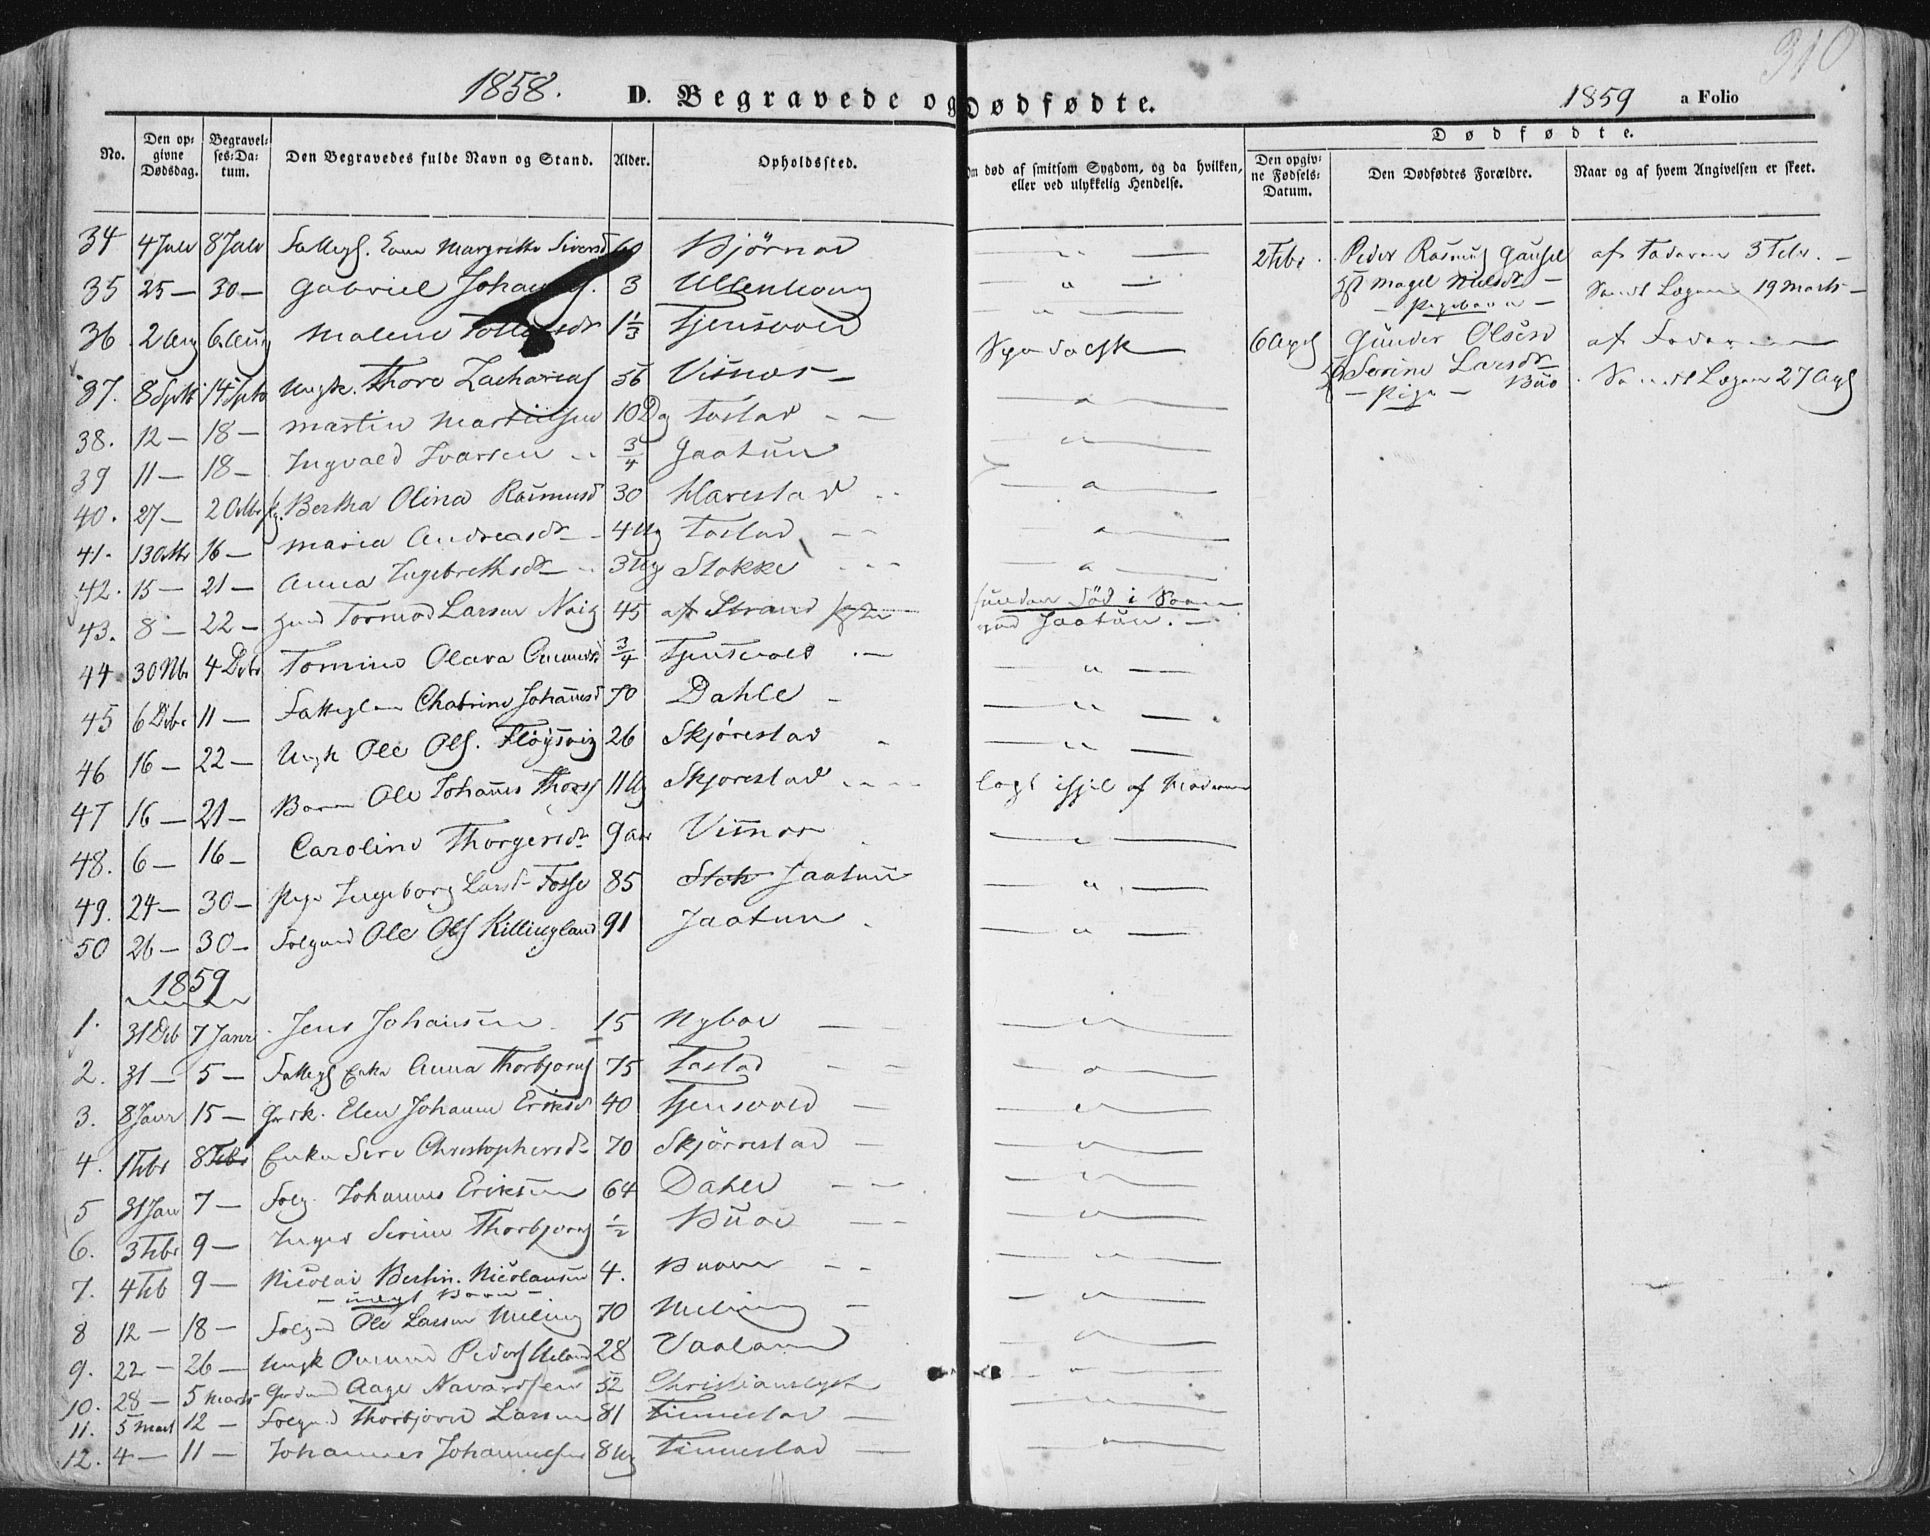 310
1858. D. Begravede og Dødfødte. 1859 a Folio
No. Den opgivne Dødsdag. Begravelses-Datum. Den Begravedes fulde Navn og Stand. Alder. Opholdssted. Om død af smitsom Sygdom, og da hvilken, eller ved ulykkelig Hendelse. Dødfødte. Den opgivne Fødsels-Datum. Den Dødfødtes Forældre. Naar og af hvem Angivelsen er skeet.
34 4 Juli 8 Juli Margrethe Siversd 60 Bjørnaa — " — 2 Febr. Peder Rasmus Gausel af Faderen 3 Febr. —
35 25 — 30 — Gabriel Johan 3 Ullenhoug — " — Magel Nielsdr — Lægen 19 Marts —
— Pigebarn —
36 2 Aug 6 Aug Malene 1 1/3 Tjensvold — " —
6 Apl Gunder Olsen af Faderen
37. 8 Septb 14 Septb Ungk. Thore Zacharias 56 Visnes — Spedalsk — Serine Larsdr Buø Lægen 27 Apl
— Pige —
38. 12 — 18 — Martin Martinsen 10 Dg Tastad — — — " —
39 11 — 18 — Ingvald Ivarsen 3/4 Jaatun — " —
40. 27 — 2 Octbr Pg. Bertha Olina Rasmusd 30 Harestad — " —
41. 13 Octbr 16 — Maria Andreasdr 4 Ug Tastad — — — " —
42. 15 — 21 — Anna Ingebrethsdr 3 Ug Stokke — " —
43. 8 — 22 — Tormod Larsen 45 af Strand funden død i Søen
ved Jaatun. —
44 30 Nbr 4 Dcbr Tomine Olava 3/4 Tjensvold — — " —
45 6 Dcbr 11 — Chatrine Johannesd 70 Dahle — — " —
46 16 — 22 — Ungk Ole Ols. Fløysvig 26 Skjørestad — " —
47 16 — 21 — Barn Ole Johannes Thors 11 Ug Skjørestad lagt ihjel af Moderen
48. 6 — 16 — Caroline Thorgersdr 9 aar Visnes — " —
49. 24 — 30 — Pige Ingeborg Larsd Fosse 85 Stok Jaatun — " —
50 26 — 30 — Folgmd Ole Ols Killingland 91 Jaatun — " —
1859
1. 31 Dcb 7 Janr Jens Johansen 15 Nyboe — — " —
2. 31 — 5 — Fattigl Enke Anna Thorbjorns 75 Tastad — " —
3. 8 Janr 15 — Elen Johanne Eriksd 40 Tjensvold — — " —
4. 1 Febr 8 Febr Enke Sere Christophersdr 70 Skjørrestad — — " —
5 31 Jan 7 — Folg. Johannes Eriksen 64 Dahle — — — " —
6. 3 Febr 9 — Inger Serine Thorbjorns 1/2 Buøe — — — " —
7. 4 Feb 9 — Nicolai Bertin. Nicolausen 4. — — — " —
— uægt Barn —
8 12 — 18 — Folgmd Ole Larsen Meling 70 Meling — — " —
9. 22 — 26 — Ungk Omund Peders 28 Vaaland — " —
10. 28 — 5 Marts Aage Navardsen 52 Christianslyst — " —
11. 5 Mart 12 — Folgmd Thorbjørn Larsen 81 Finnestad — — " —
12. 4 — 11 — Johannes Johannessen 8 Ug Finnestad — — " —